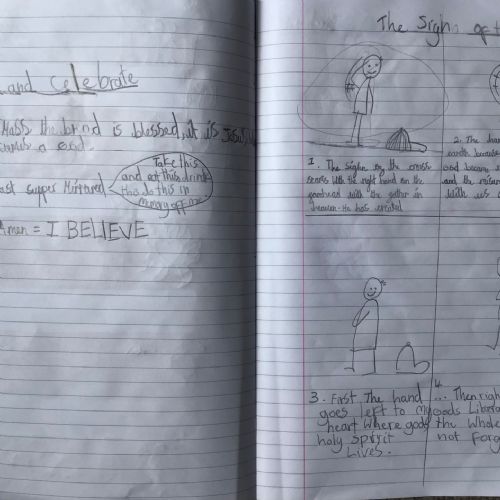 and celebrate
Mass the bread is blessed, it is Jesus,
Last supper Mirrored
Take this
and eat this, drink
this do this in
memory off me
Amen = I BELIEVE
The Sign of t
1. The sighn of the cross
starts with the right hand on the
forehead with the father in
heaven- He has created
2. The han
earth because
and became
and the
With us
3. First The hand
goes left to my
heart where gods
holy spirit
Lives.
4. ... Then righ
Gods
the Whole
not Forg